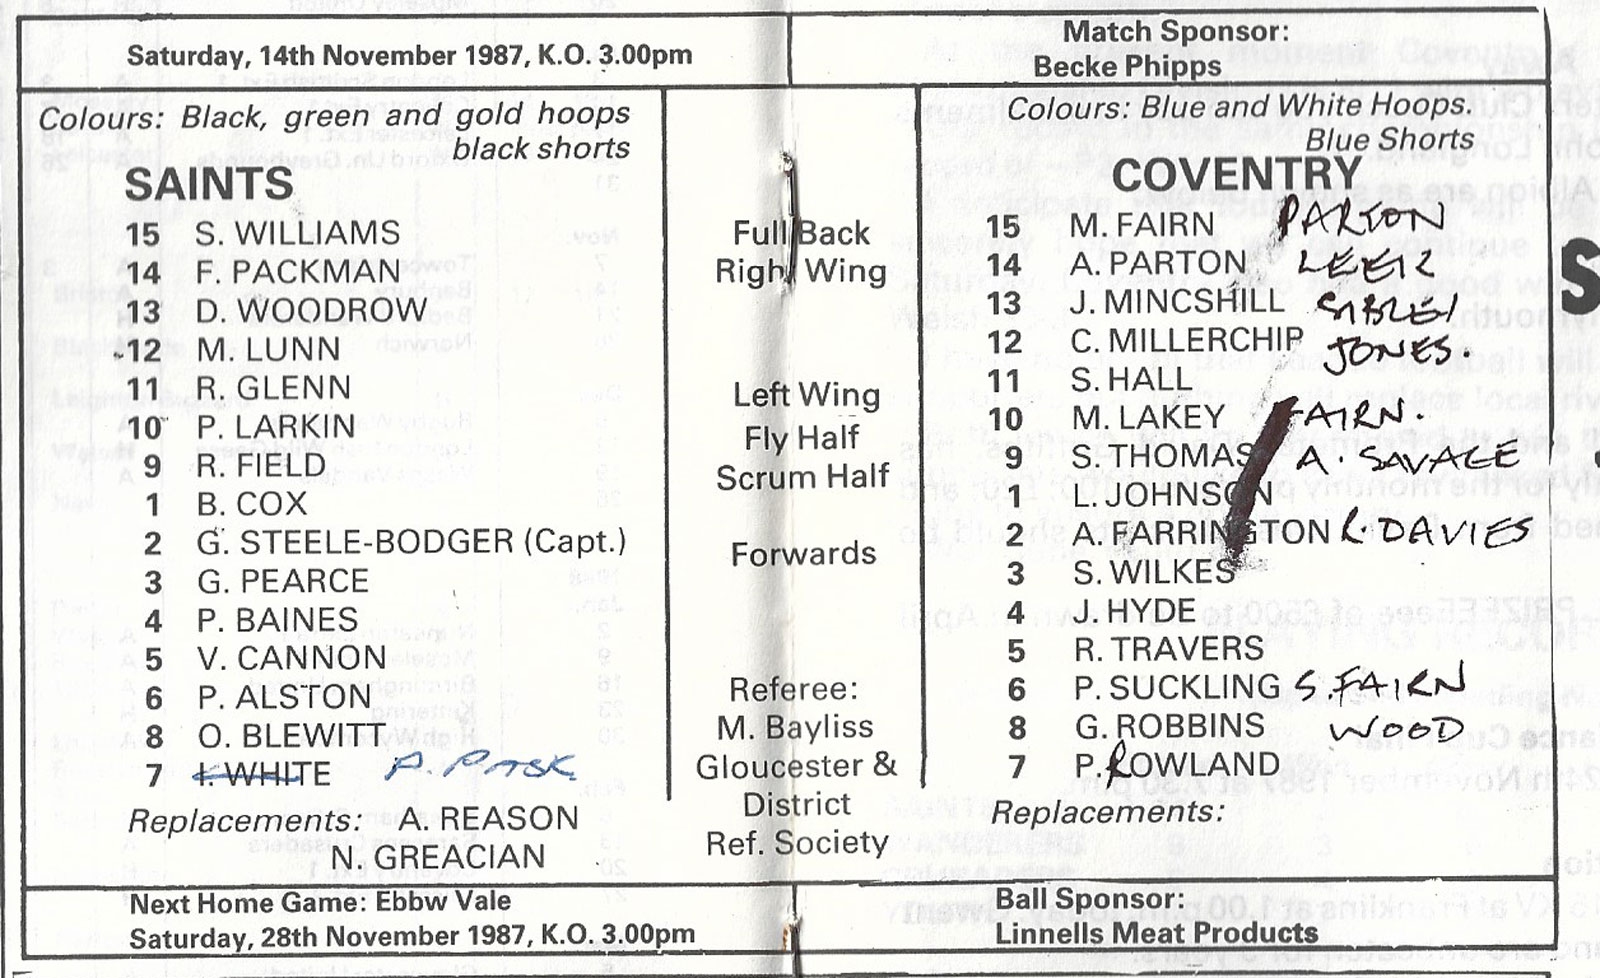 Saturday, 14th November 1987, K.O. 3.00pm
Match Sponsor:
Becke Phipps
Colours: Black, green and gold hoops
black shorts
SAINTS
15 S. WILLIAMS
14 F. PACKMAN
13 D. WOODROW
12 M. LUNN
11 R. GLENN
10 P. LARKIN
9 R. FIELD
1 B. COX
2 G. STEELE-BODGER (Capt.)
3 G. PEARCE
4 P. BAINES
5 V. CANNON
6 P. ALSTON
8 O. BLEWITT
7 I. WHITE A. PASK
Replacements: A. REASON
N. GREACIAN
Full Back
Right Wing
Left Wing
Fly Half
Scrum Half
Forwards
Referee:
M. Bayliss
Gloucester &
District
Ref. Society
Colours: Blue and White Hoops.
Blue Shorts
COVENTRY
15 M. FAIRN PARTON
14 A. PARTON
13 J. MINCSHILL
12 C. MILLERCHIP JONES.
11 S. HALL
10 M. LAKEY FAIRN.
9 S. THOMAS A. SAVAGE
1 L. JOHNSON
2 A. FARRINGTON R. DAVIES
3 S. WILKES
4 J. HYDE
5 R. TRAVERS
6 P. SUCKLING S. FAIRN
8 G. ROBBINS WOOD
7 P. ROWLAND
Replacements:
Next Home Game: Ebbw Vale
Saturday, 28th November 1987, K.O. 3.00pm
Ball Sponsor:
Linnells Meat Products